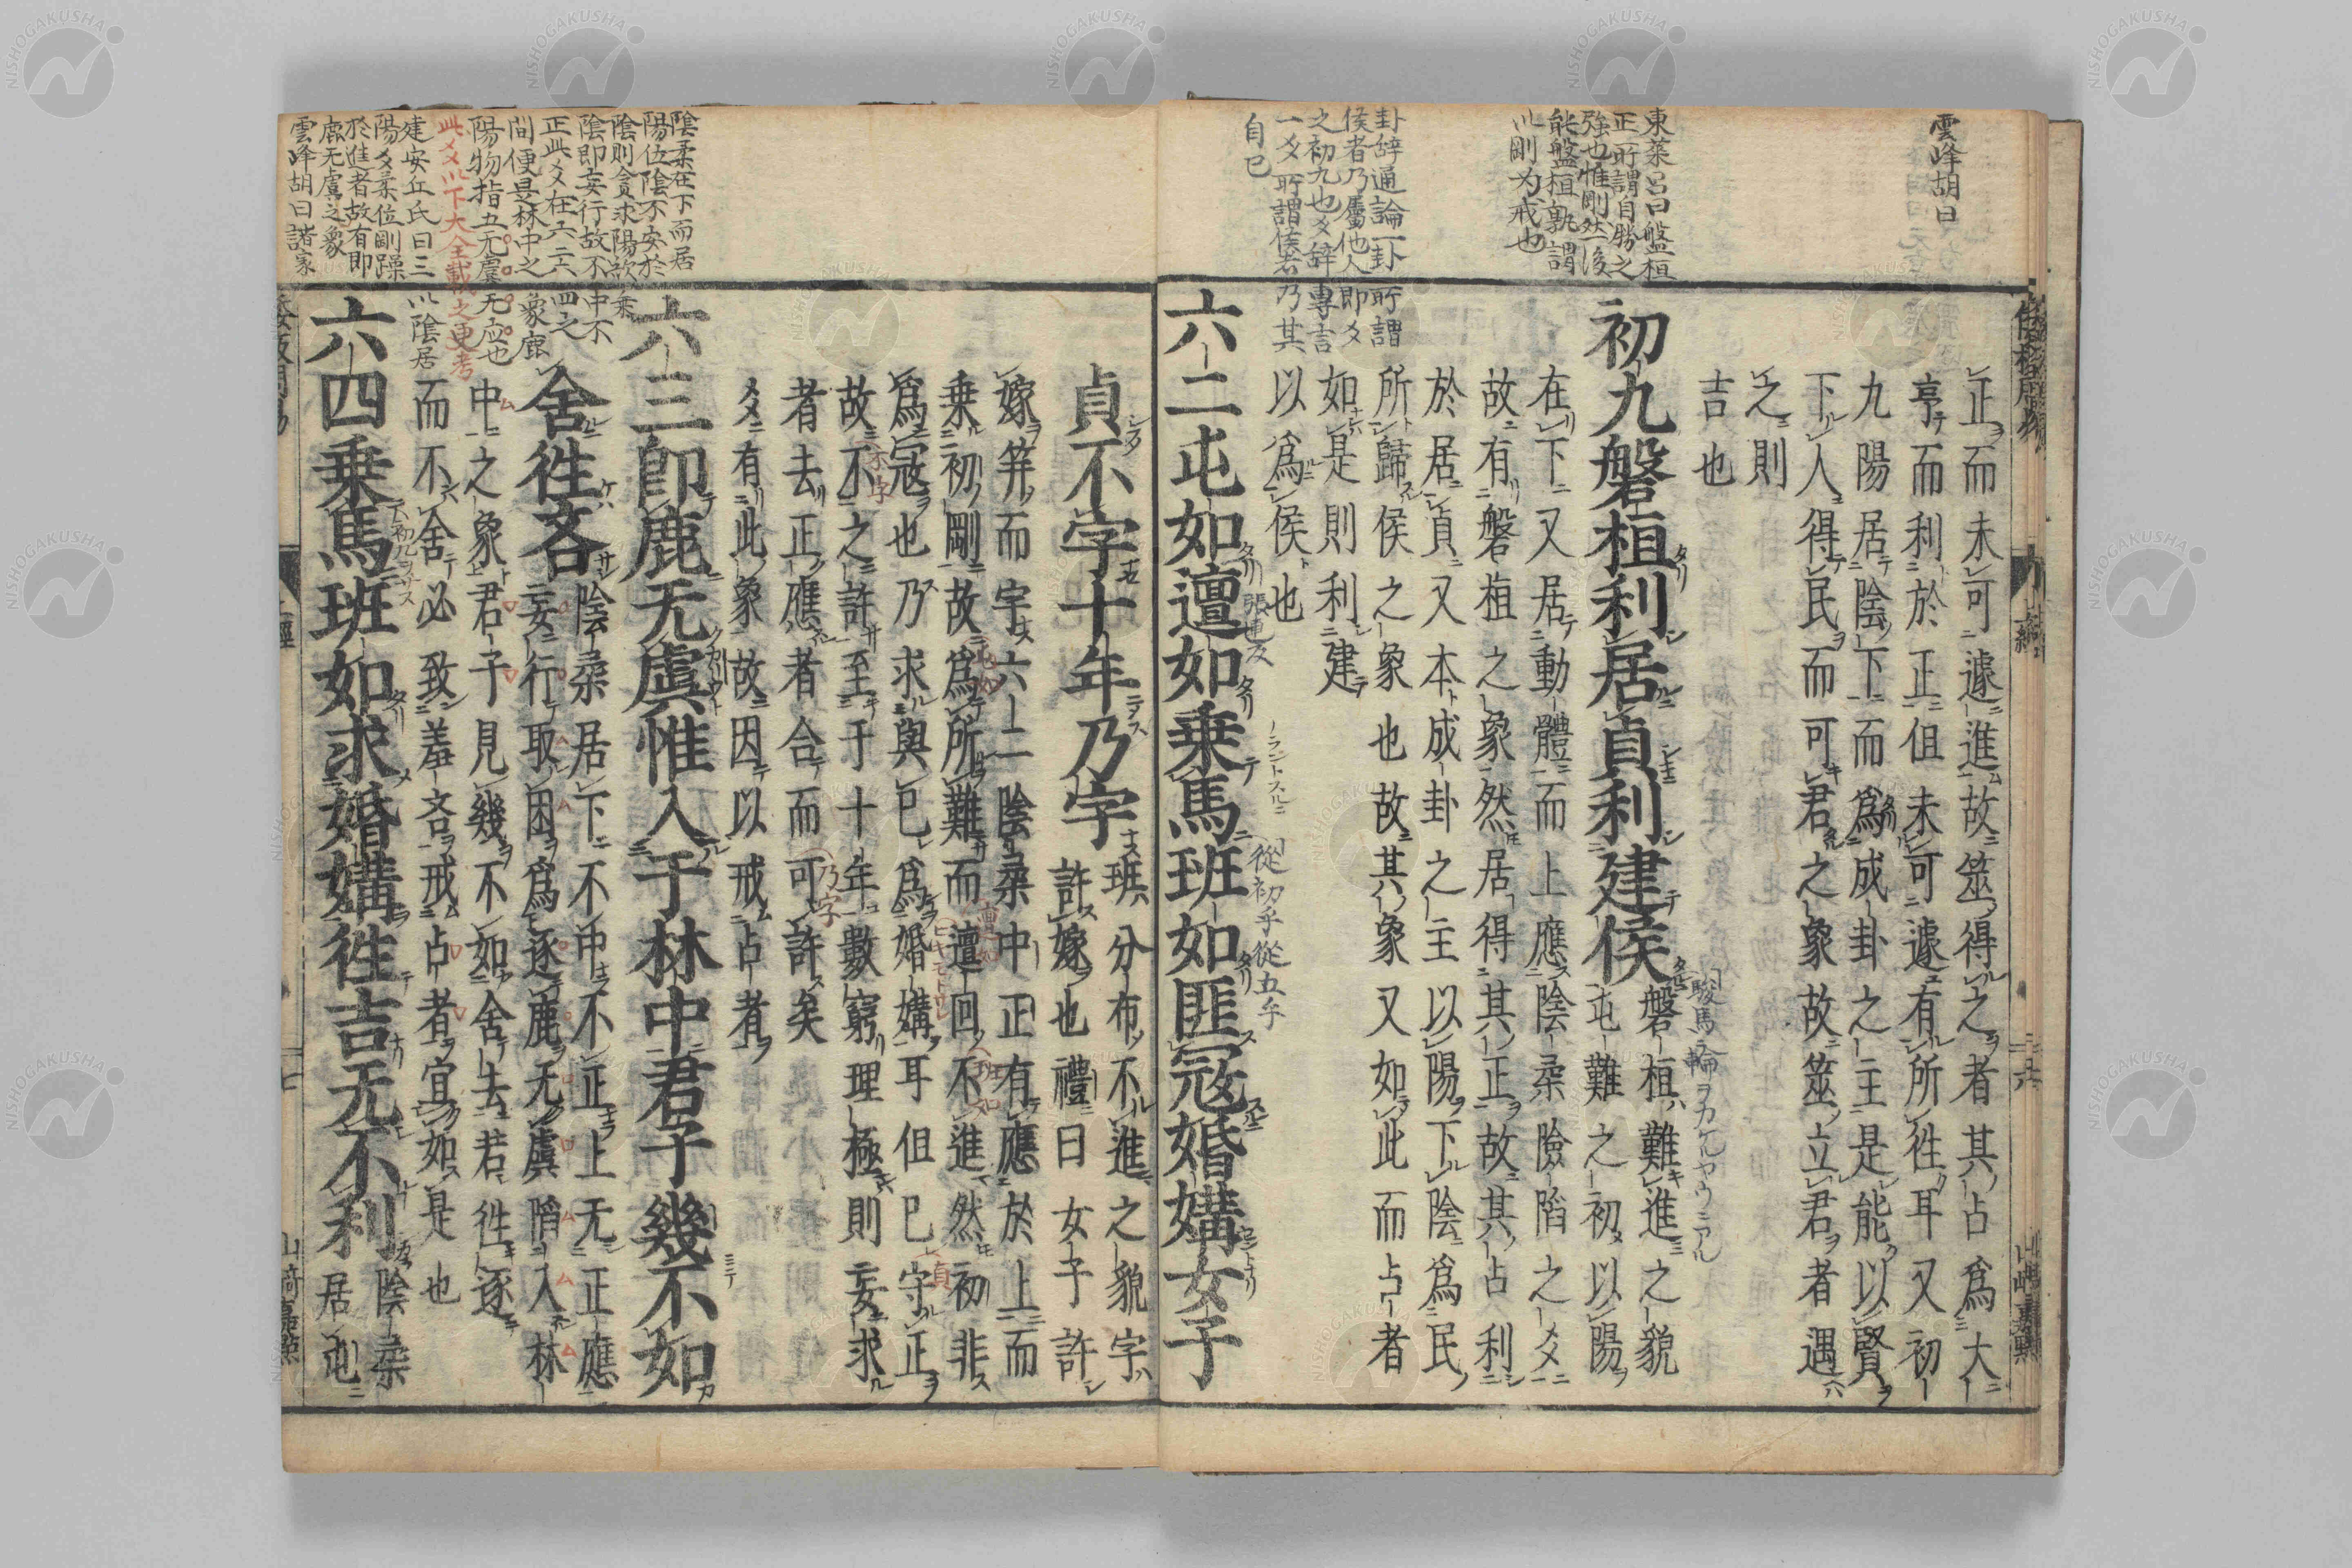 雲峰胡曰
正而未可遽進故筮得之者其占爲大
亨而利於正但未可遽有所往耳又初
九陽居陰下而爲成卦之主是能以賢
下人得民而可君之象故筮立君者遇
之則
吉也
東萊呂曰盤桓
正所謂自勝之
強也惟剛然後
能盤桓孰謂
以剛为戒也
初九磐桓利居貞利建侯
磐桓難進之貌
屯難之初以陽
在下又居動體而上應陰柔險陷之爻
故有磐桓之象然居得其正故其占利
於居貞又本成卦之主以陽下陰爲民
所歸侯之象也故其象又如此而占者
如是則利建
以爲侯也
卦辞通論一卦所謂
侯者乃屬他人即爻
之初九也爻辞專言
一爻所謂侯者乃其
自已
六二屯如邅如乗馬班如匪寇婚媾女子
從初乎從五乎
貞不字十年乃字
班分布不進之貌字
許嫁也禮曰女子許
嫁笄而字六二陰柔中正有應於上而
乗初剛故爲所難而邅回不進然初非
爲寇也乃求與已爲婚媾耳但已守正
故不之許至于十年數窮理極則妄求
者去正應者合而可許矣
爻有此象故因以戒占者
陰柔在下而居
陽位陰不安於
陰則貪求陽欲乗
陰即妄行故不中不
正此爻在六二六四之
间便是林中之象鹿
陽物指五无虞无应也
此爻以下大全載之更考
六三即鹿无虞惟入于林中君子幾不如
舍徃吝
陰柔居下不中不正上无正應
妄行取困爲逐鹿无虞陷入林
中之象君子見幾不如舍去若徃逐
而不舍必致羞吝戒占者宜如是也
建安丘氏曰三以陰居
陽爻柔位剛躁
於進者故有即
鹿无虞之象
雲峰胡曰諸家
六四乗馬班如求婚媾徃吉无不利
陰柔
居屯
山﨑嘉點